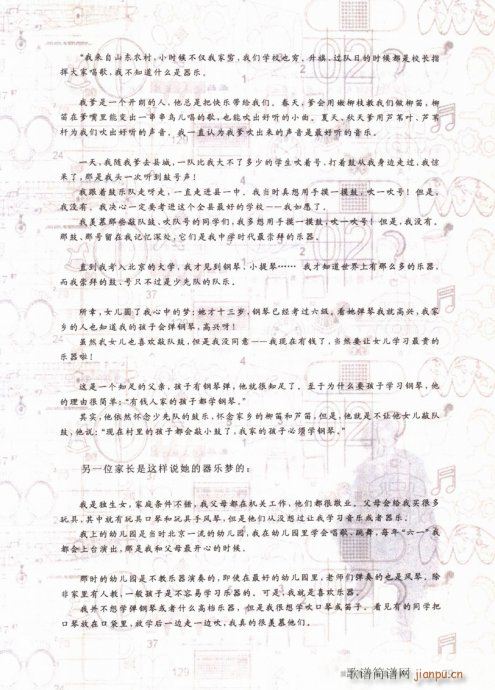 “我来自山东农村,小时候不仅我家穷,我们学校也穷。升旗、过队日的时候都是校长指
挥大家唱歌,我不知道什么是器乐。
我爹是一个开朗的人,他总是把快乐带给我们。春天,爹会用嫩柳枝教我们做柳笛,柳
笛在爹嘴里能变出一串串鸟儿唱的歌,也能吹出好听的小曲。夏天、秋天爹用芦苇叶、芦苇
杆为我们吹出好听的声音。我一直认为我爹吹出来的声音是最好听的音乐。
一天,我随我爹去县城,一队比我大不了多少的学生吹着号,打着鼓从我身边走过,我惊
呆了,那是我头一次听到鼓号声!
我跟着鼓乐队走呀走,一直走进县一中。我当时真想用手摸一摸鼓,吹一吹号!但是,
我没有。我决心一定要考进这个全县最好的学校——我如愿了。
我羡慕那些敲队鼓、吹队号的同学们,我多想用手摸一摸鼓,吹一吹号!但是,我没有,
那鼓、那号留在我记忆深处,它们是我中学时代最崇拜的乐器。
直到我考入北京的大学,我才见到钢琴、小提琴…… 我才知道世界上有那么多的乐器,
而我崇拜的鼓、号只不过是少先队的队乐。
所幸,女儿圆了我心中的梦:她才十三岁,钢琴已经考过六级。看她弹琴我就高兴,我家
乡的人也知道我的孩子会弹钢琴,高兴呀!
虽然我女儿也喜欢敲队鼓,但是我没同意——我现在有钱了,当然要让女儿学习最贵的
乐器啦!
这是一个知足的父亲,孩子有钢琴弹,他就很知足了。至于为什么要孩子学习钢琴,他
的理由很简单:“有钱人家的孩子都学钢琴。”
其实,他依然怀念少先队的鼓乐,怀念家乡的柳笛和芦笛,但是,他就是不让他女儿敲队
鼓,他说:“现在村里的孩子都会敲小鼓了,我家的孩子必须学钢琴。”
另一位家长是这样说她的器乐梦的:
我是独生女,家庭条件不错,我父母都在机关工作,他们都很敬业。父母会给我买很多
玩具,其中就有玩具口琴和玩具手风琴,但是他们从没想过让我学习音乐或者乐器。
我上的幼儿园是当时北京一流的幼儿园,我在幼儿园里学会唱歌、跳舞,每年“六一”我
都会上台演出,那是我和父母最开心的时候。
那时的幼儿园是不教乐器演奏的,即使在最好的幼儿园里,老师们弹奏的也是风琴。除
非家里有人教,一般孩子是不容易学习乐器的。可是,我就是喜欢乐器。
我并不想学弹钢琴或者什么高档乐器,但是我很想学吹口琴或笛子。看见有的同学把
口琴放在口袋里,放学后一边走一边吹,我真的很羡慕他们。
歌谱简谱网
jianpu.cn